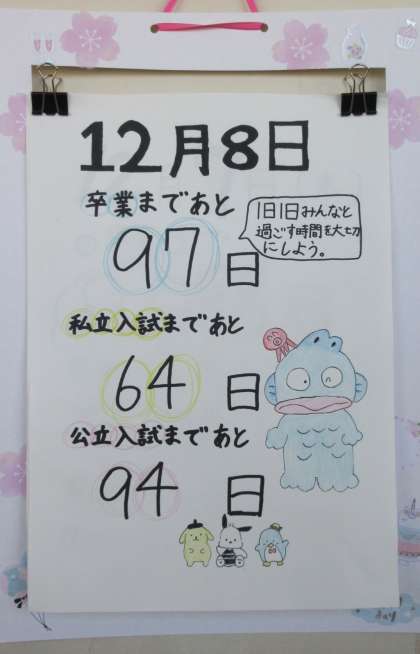 12月8日
卒業まであと
97日
1日1日みんなと
過ごす時間を大切
にしよう。
私立入試まであと
64日
公立入試まであと
94日
day